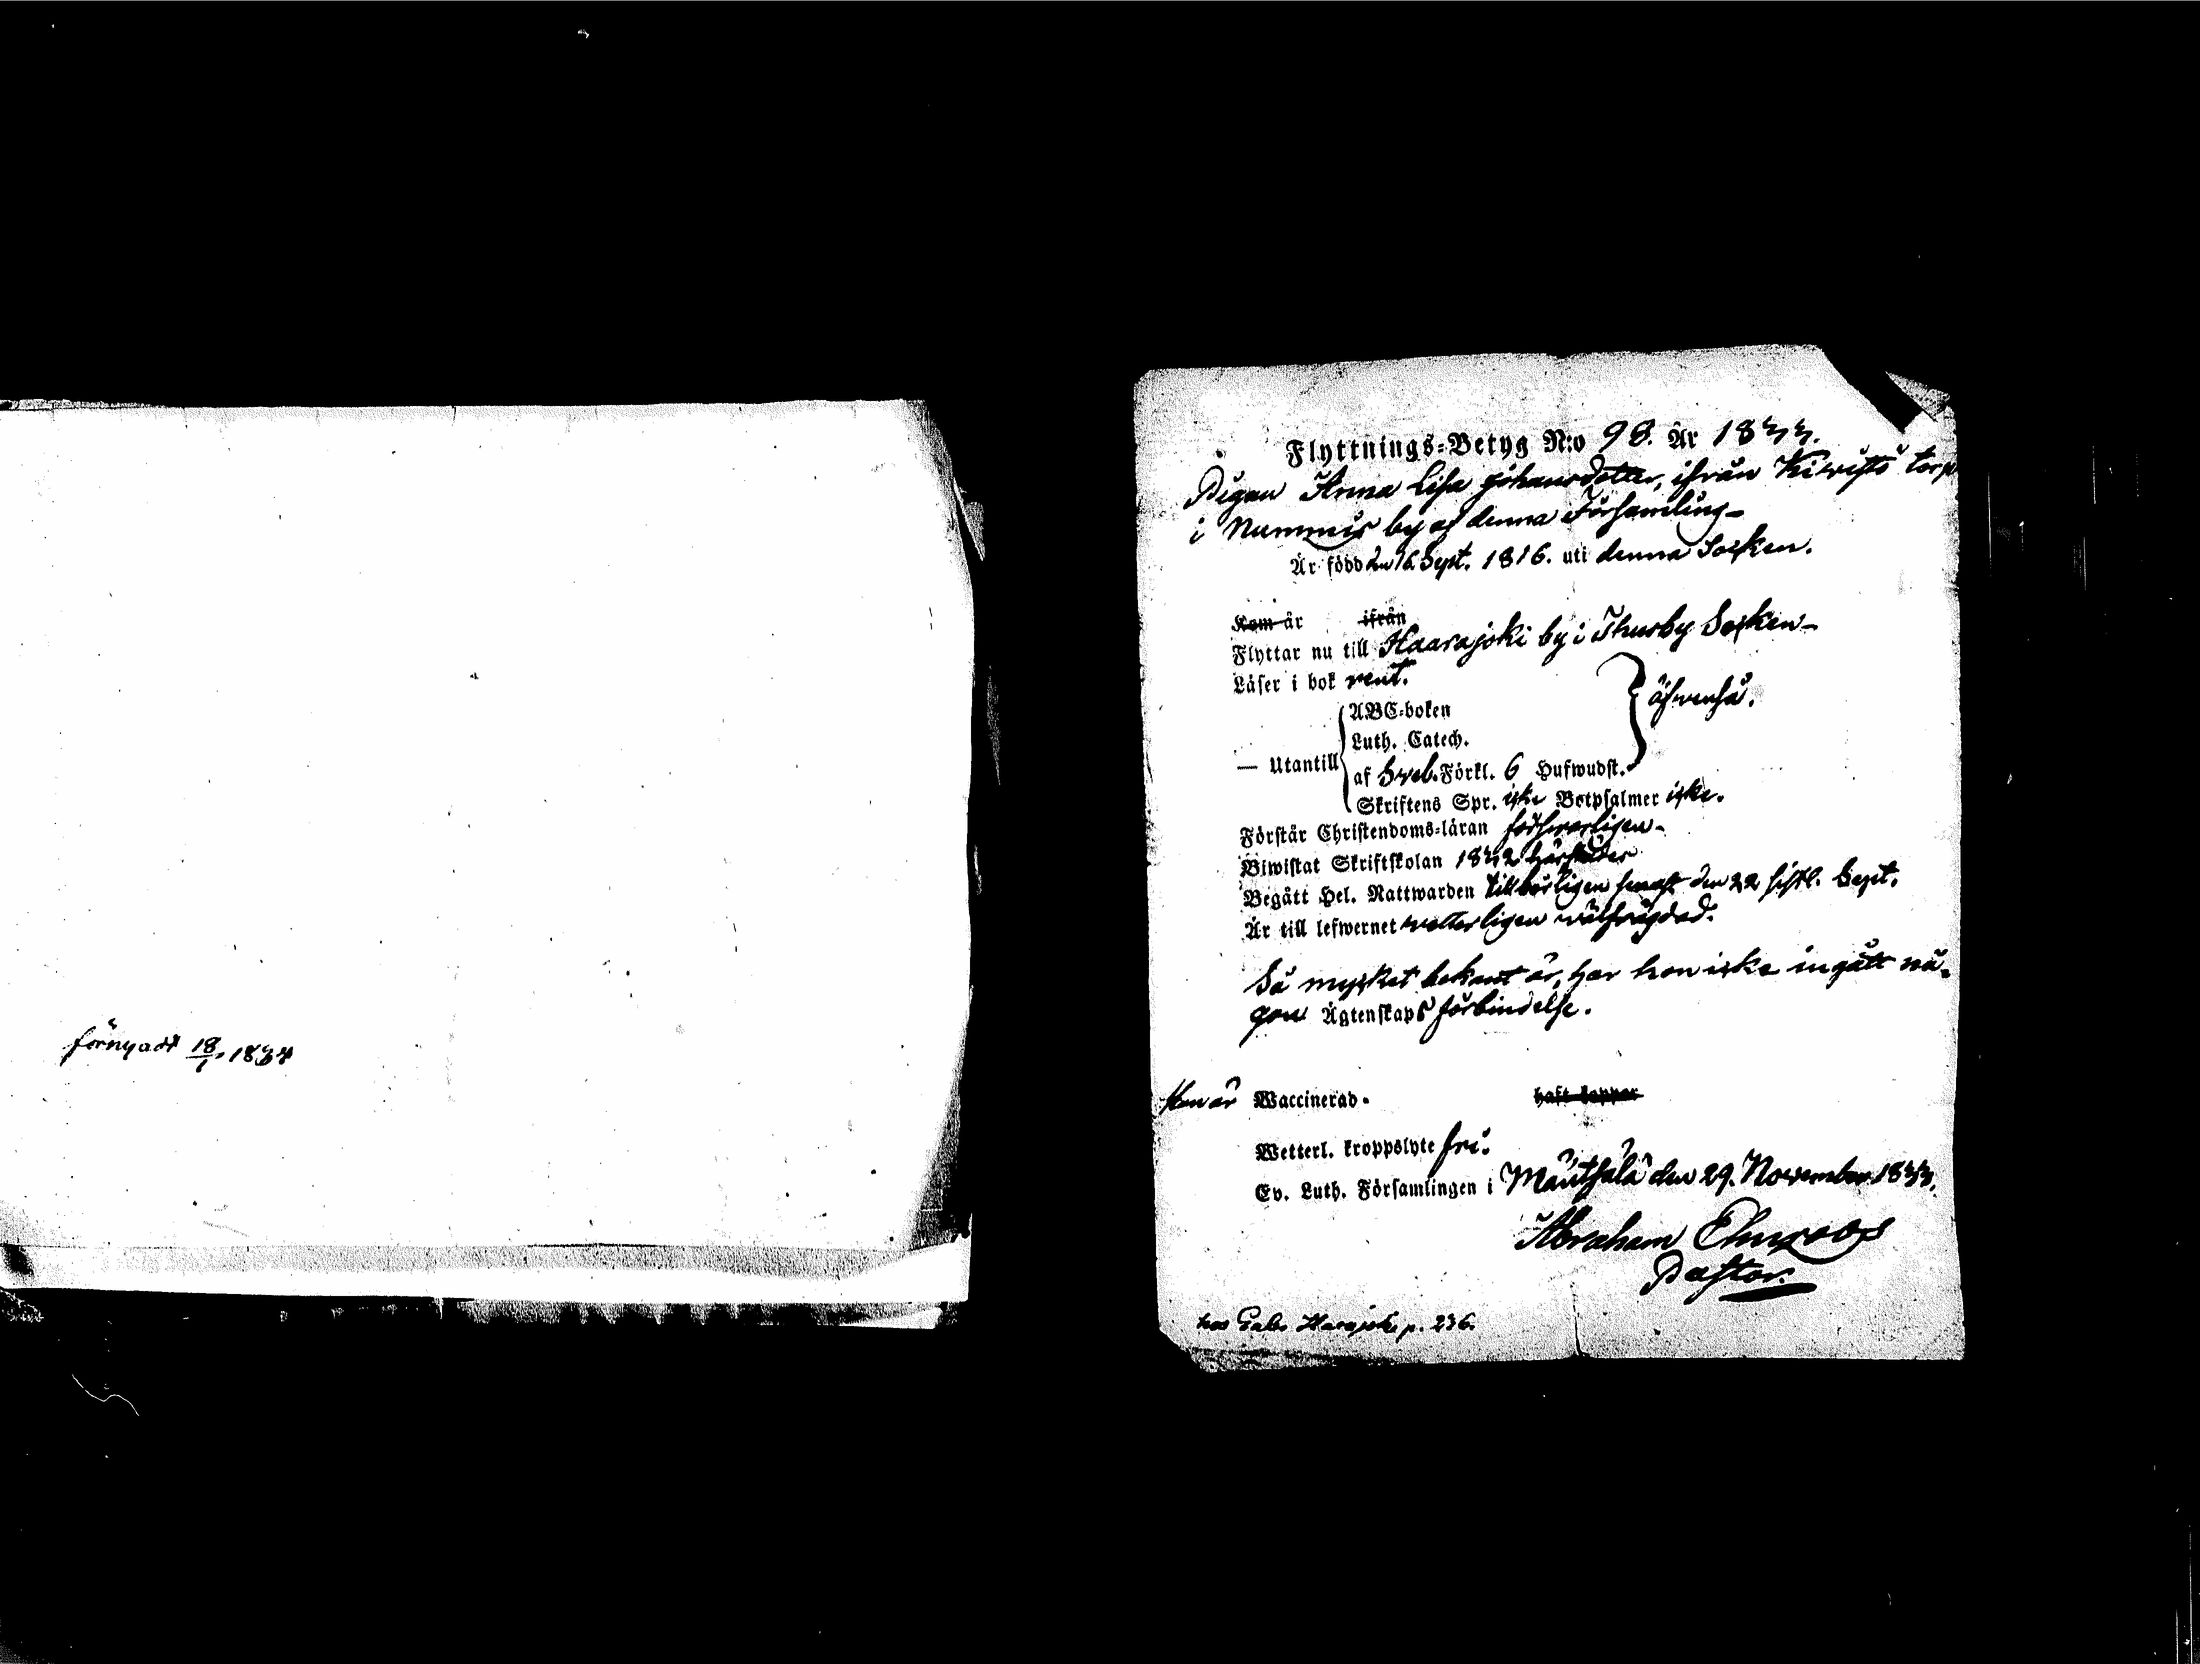 förnyadt 18/1 1834
Flyttnings-Betyg N:o 98. År 1833.
Pigan Anna Lisa Johansdotter, ifrån torp
i Nummis by af denna Församling-
Är född den 16 Sept. 1816. uti denna Socken.
Kom år ifrån
Flyttar nu till Haarajoki by i Thusby Socken-
Läser i bok rent.
ABC-boken
Luth. Catech.
öfwenså.
— Utantill
af Sveb. Förkl. 6 Hufwudst.
Skriftens Spr. icke Botpsalmer icke.
Förstår Christendoms-läran försvarligen-
Biwistat Skriftskolan 1832 härstädes
Begått Hel. Nattwarden tillbörligen senast den 22 sistl. Sept.
Är till lefwernet wetterligen wälfrägdad.
Så mycket bekant är, har hon icke ingått nå-
gon Ägtenskaps förbindelse.
Hon är Waccinerad. haft koppor
Wetterl. kroppslyte fri.
Ev. Luth. Församlingen i Mäntsälä den 29. November 1833.
Abraham Ehnroos
Pastor.
hos Gabr Harajoki p. 236.